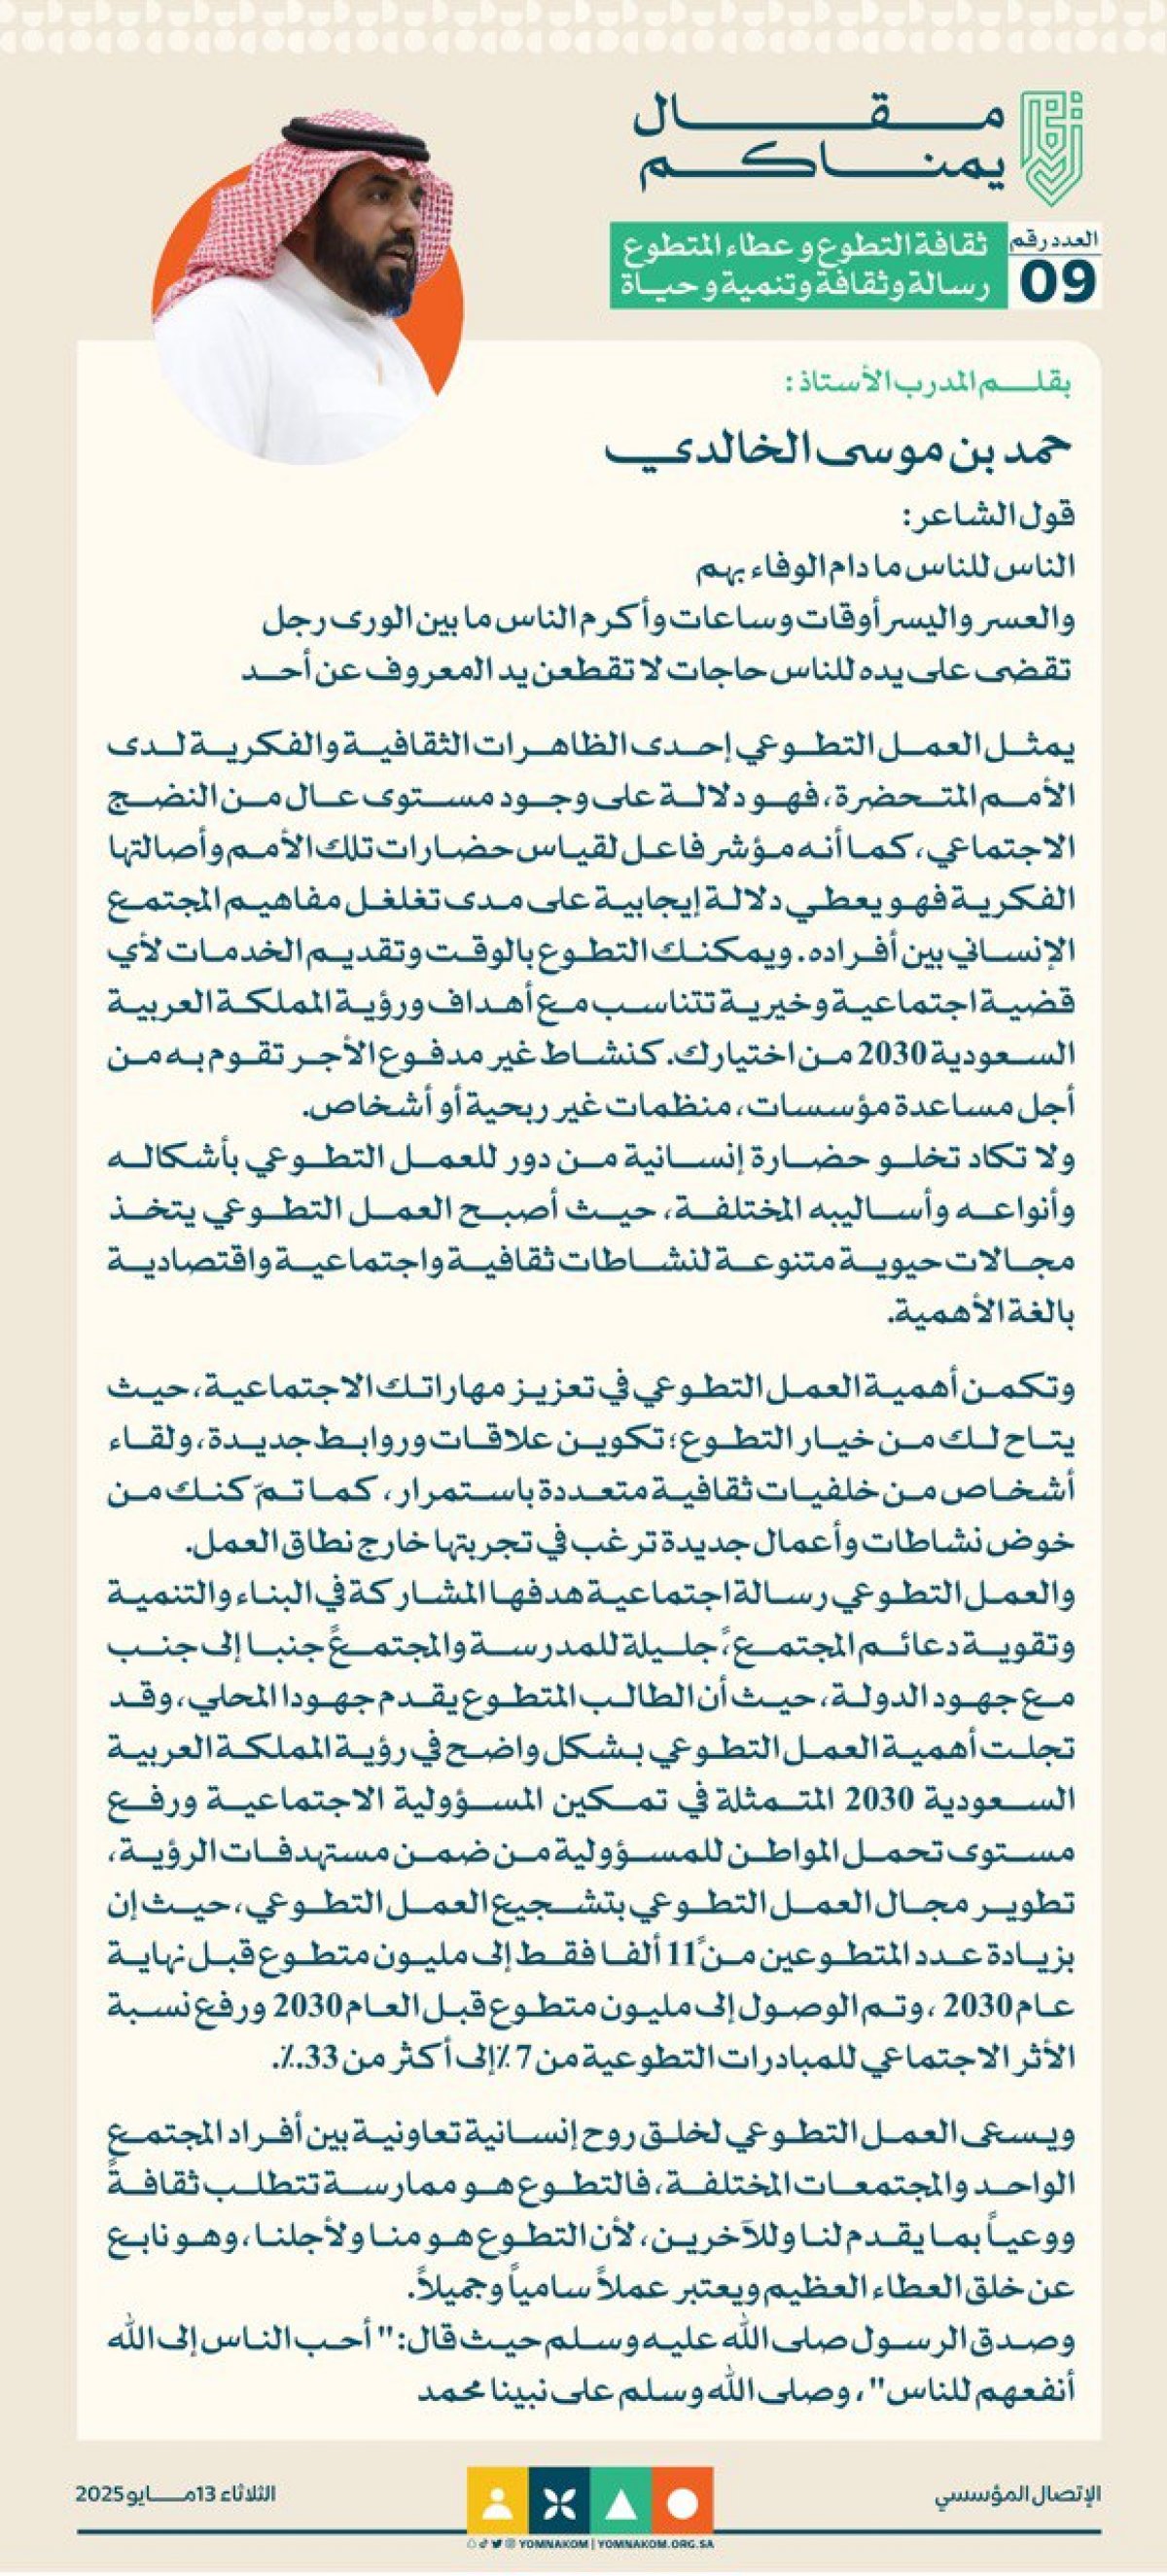 مقال
يمناكم
العدد رقم
09
ثقافة التطوع وعطاء المتطوع
رسالة وثقافة وتنمية وحياة
بقلم المدرب الأستاذ:
حمد بن موسى الخالدي
قول الشاعر:
الناس للناس ما دام الوفاء بهم
والعسر واليسر أوقات وساعات وأكرم الناس ما بين الورى رجل
تقضى على يده للناس حاجات لا تقطعن يد المعروف عن أحد
يمثل العمل التطوعي إحدى الظاهرات الثقافية والفكرية لدى
الأمم المتحضرة، فهو دلالة على وجود مستوى عال من النضج
الاجتماعي، كما أنه مؤشر فاعل لقياس حضارات تلك الأمم وأصالتها
الفكرية فهو يعطي دلالة إيجابية على مدى تغلغل مفاهيم المجتمع
الإنساني بين أفراده. ويمكنك التطوع بالوقت وتقديم الخدمات لأي
قضية اجتماعية وخيرية تتناسب مع أهداف ورؤية المملكة العربية
السعودية 2030 من اختيارك. كنشاط غير مدفوع الأجر تقوم به من
أجل مساعدة مؤسسات، منظمات غير ربحية أو أشخاص.
ولا تكاد تخلو حضارة إنسانية من دور للعمل التطوعي بأشكاله
وأنواعه وأساليبه المختلفة، حيث أصبح العمل التطوعي يتخذ
مجالات حيوية متنوعة لنشاطات ثقافية واجتماعية واقتصادية
بالغة الأهمية.
وتكمن أهمية العمل التطوعي في تعزيز مهاراتك الاجتماعية، حيث
يتاح لك من خيار التطوع؛ تكوين علاقات وروابط جديدة، ولقاء
أشخاص من خلفيات ثقافية متعددة باستمرار، كما تمّ كنك من
خوض نشاطات وأعمال جديدة ترغب في تجربتها خارج نطاق العمل.
والعمل التطوعي رسالة اجتماعية هدفها المشاركة في البناء والتنمية
وتقوية دعائم المجتمع، ًجليلة للمدرسة والمجتمع ًجنبا إلى جنب
مع جهود الدولة، حيث أن الطالب المتطوع يقدم جهودا المحلي، وقد
تجلت أهمية العمل التطوعي بشكل واضح في رؤية المملكة العربية
السعودية 2030 المتمثلة في تمكين المسؤولية الاجتماعية ورفع
مستوى تحمل المواطن للمسؤولية من ضمن مستهدفات الرؤية،
تطوير مجال العمل التطوعي بتشجيع العمل التطوعي، حيث إن
بزيادة عدد المتطوعين من ً11 ألفا فقط إلى مليون متطوع قبل نهاية
عام 2030، وتم الوصول إلى مليون متطوع قبل العام 2030 ورفع نسبة
الأثر الاجتماعي للمبادرات التطوعية من 7٪ إلى أكثر من 33.٪.
ويسعى العمل التطوعي لخلق روح إنسانية تعاونية بين أفراد المجتمع
الواحد والمجتمعات المختلفة، فالتطوع هو ممارسة تتطلب ثقافةً
ووعياً بما يقدم لنا وللآخرين، لأن التطوع هو منا ولأجلنا، وهو نابع
عن خلق العطاء العظيم ويعتبر عملاً سامياً وجميلاً.
وصدق الرسول صلى الله عليه وسلم حيث قال: "أحب الناس إلى الله
أنفعهم للناس"، وصلى الله وسلم على نبينا محمد
الإتصال المؤسسي
الثلاثاء 13 مايو 2025
YOMNAKOM | YOMNAKOM.ORG.SA